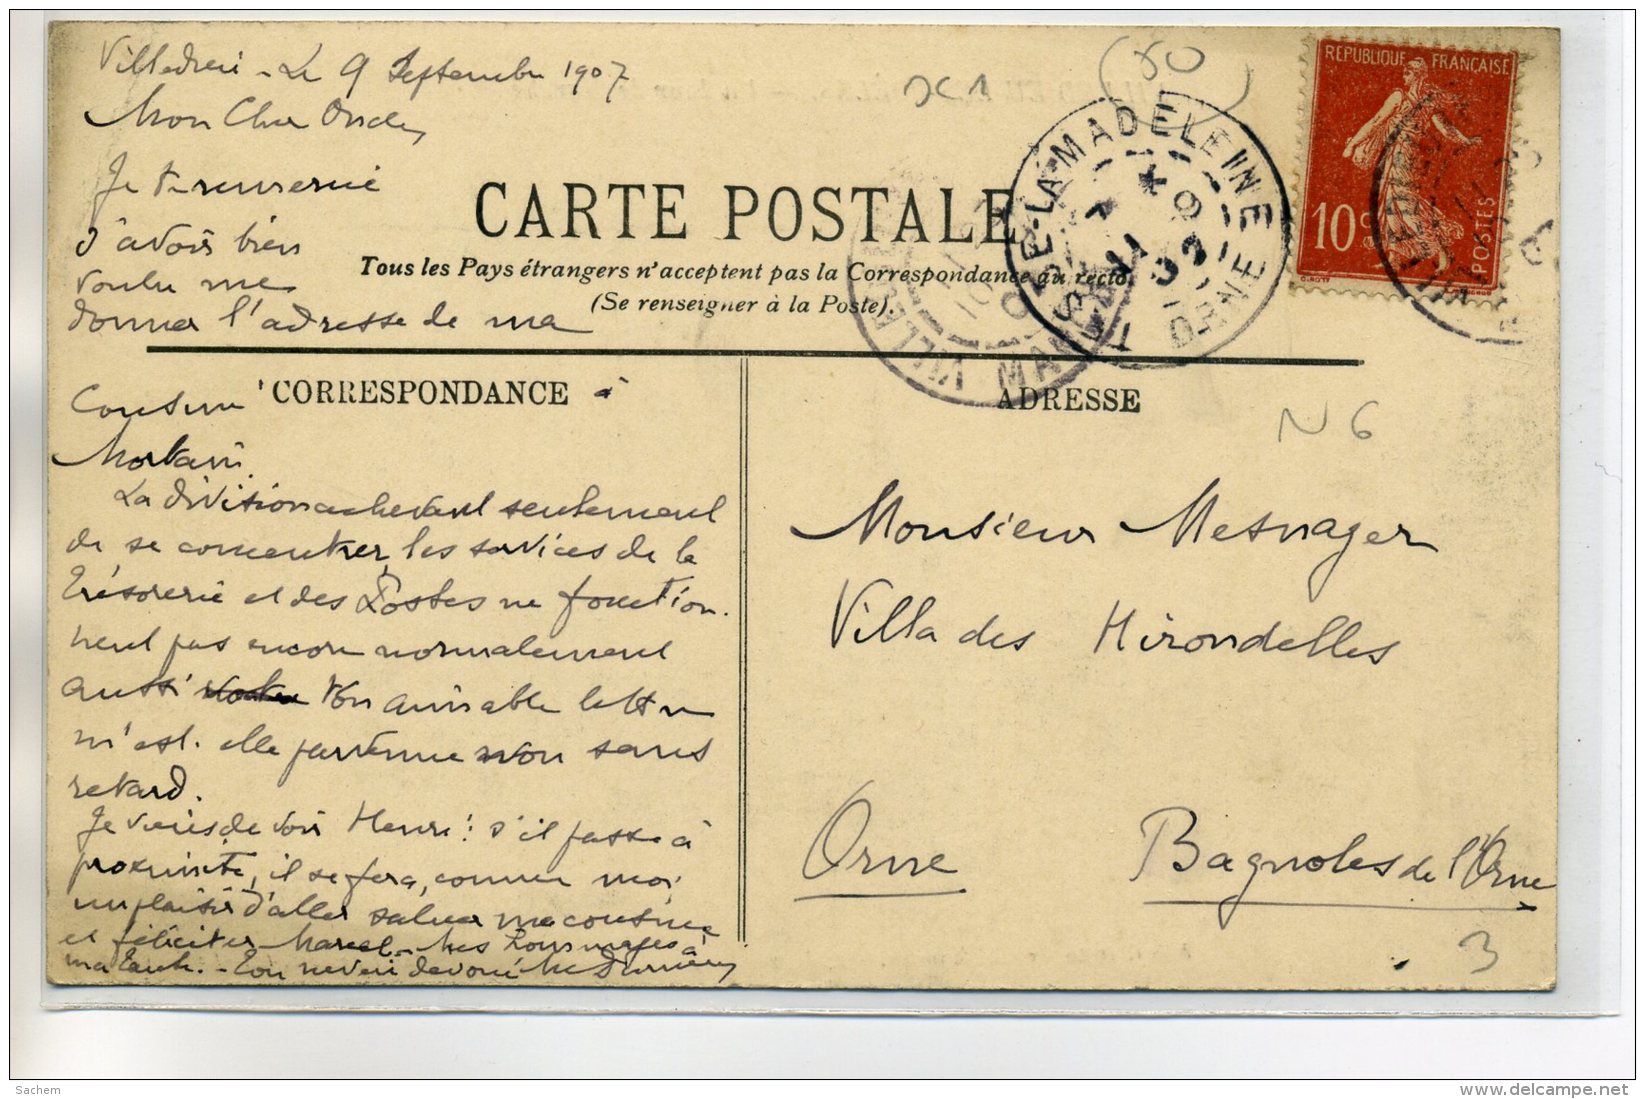 Villedieu - Le 9 Septembre 1907
Mon Cher Oncle,
Je te remercie
d'avoir bien
voulu me
donner l'adresse de ma
Cousine à
Mortain.
La division achevant seulement
de se concentrer, les services de la
Trésorerie et des Postes ne fonction-
nent pas encore normalement
aussi ton aimable lettre
m'est-elle parvenue non sans
retard.
Je viens de voir Henri : s'il passe à
proximité, il se fera, comme moi
un plaisir d'aller saluer ma cousine
et féliciter Marcel - Mes hommages à
ma tante. - Ton neveu dévoué
CARTE POSTALE
Tous les Pays étrangers n'acceptent pas la Correspondance au recto.
(Se renseigner à la Poste).
CORRESPONDANCE
ADRESSE
50
DC1
LA MADELEINE
ORNE
VILLEDIEU
MANCHE
REPUBLIQUE FRANÇAISE
10c
POSTES
N 6
Monsieur Mesnager
Villa des Hirondelles
Orne Bagnoles de l'Orne
3
Sachem
www.delcampe.net